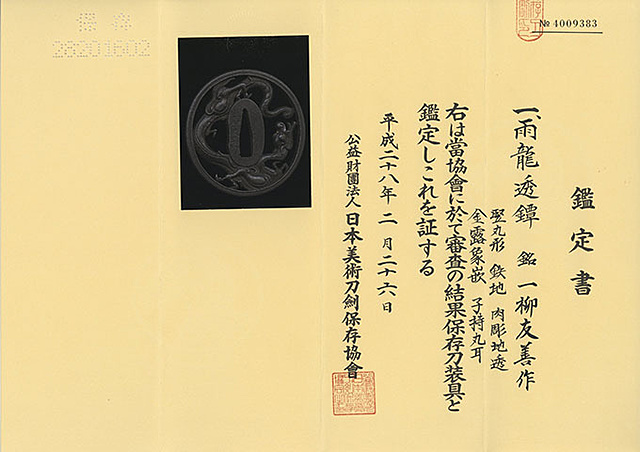 № 4009383
鑑定書
一、雨龍透鐔 銘 一柳友善作
竪丸形 鉄地 肉彫地透
金露象嵌 子持丸耳
右は當協會に於て審査の結果保存刀装具と
鑑定しこれを証する
平成二十八年二月二十六日
公益財團法人 日本美術刀劍保存協會